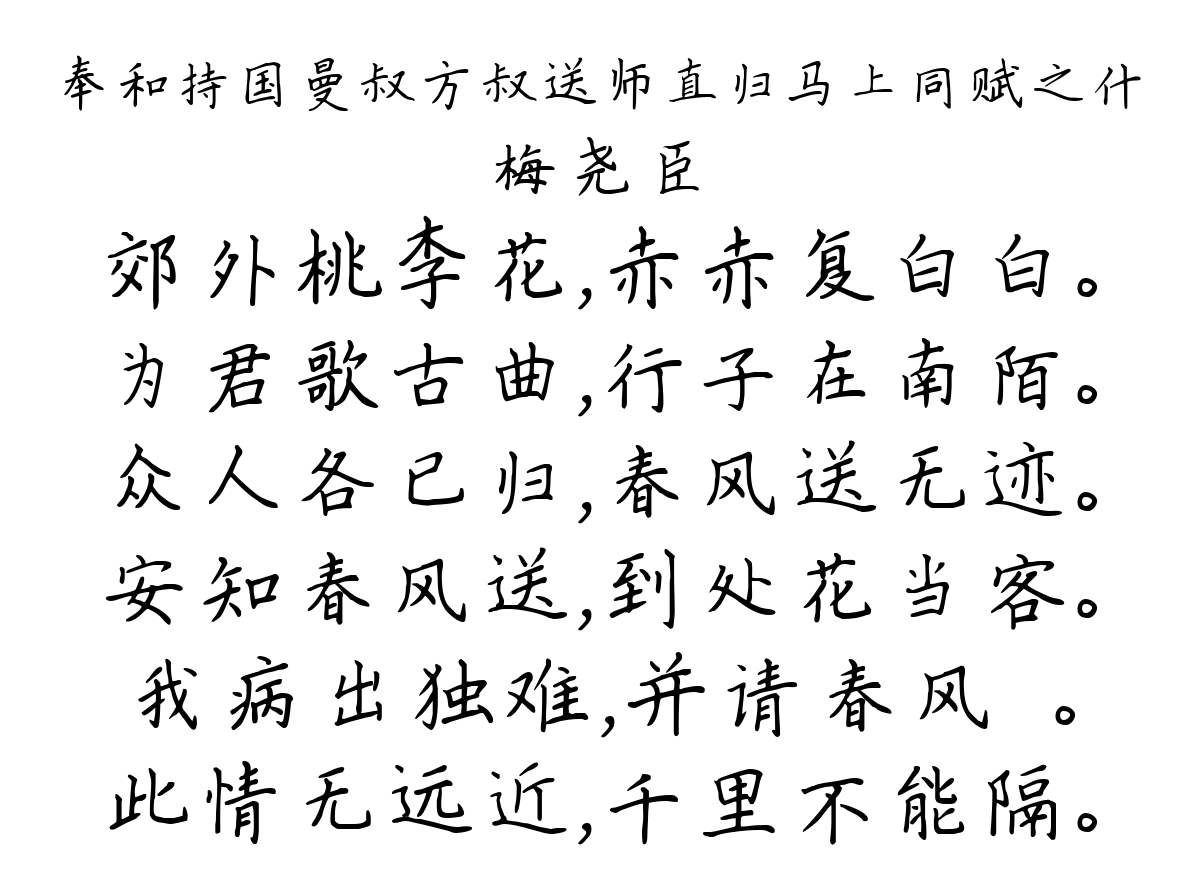 奉和持国曼叔方叔送师直归马上同赋之什
梅尧臣
郊外桃李花,赤赤复白白。
为君歌古曲,行子在南陌。
众人各已归,春风送无迹。
安知春风送,到处花当客。
我病出独难,并请春风 。
此情无远近,千里不能隔。